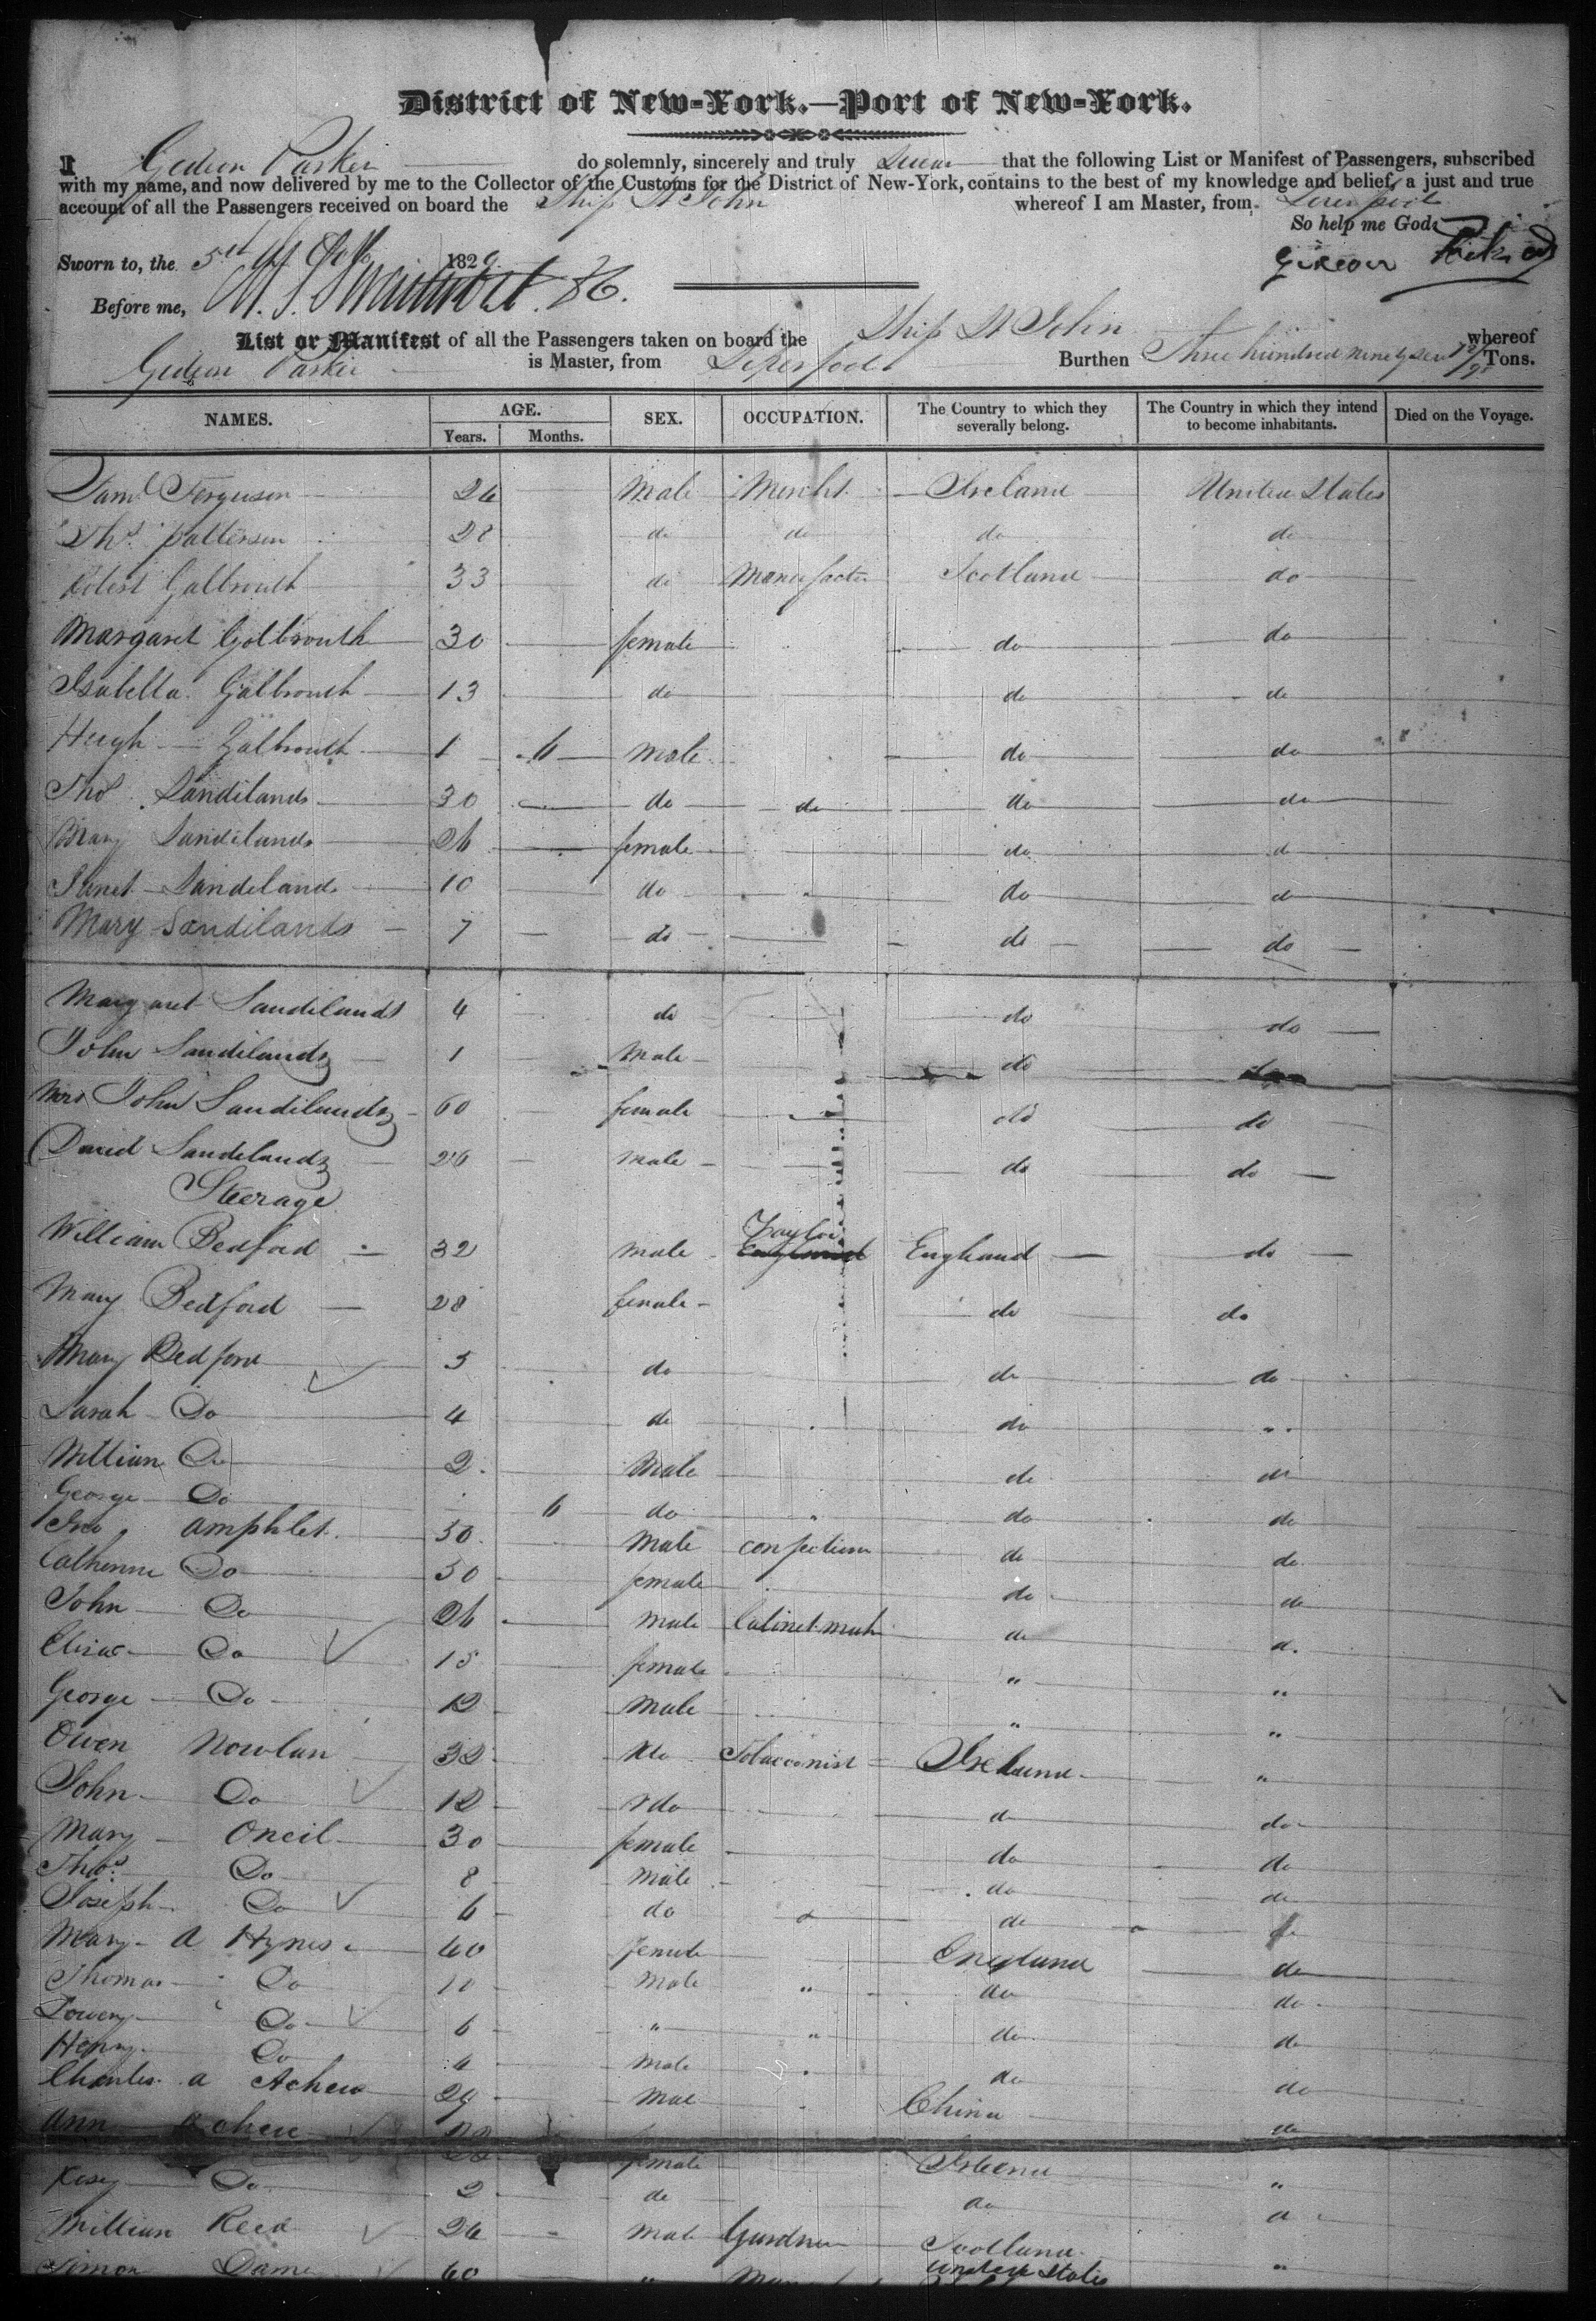 District of New-York.—Port of New-York.
I Gideon Parker do solemnly, sincerely and truly swear that the following List or Manifest of Passengers, subscribed
with my name, and now delivered by me to the Collector of the Customs for the District of New-York, contains to the best of my knowledge and belief, a just and true
account of all the Passengers received on board the Ship St John whereof I am Master, from Liverpool
So help me God.
Sworn to, the 5th 1829 Gideon Parker
Before me,
List or Manifest of all the Passengers taken on board the Ship St John whereof
Gideon Parker is Master, from Liverpool Burthen Three hundred ninety Tons.
NAMES. AGE. SEX. OCCUPATION. The Country to which they severally belong. The Country in which they intend to become inhabitants. Died on the Voyage.
Years. Months.
Saml Ferguson 26 Male Mercht Ireland United States
Thos Patterson 28 do do do do
Robert Galbrouth 33 do Manufactr Scotland do
Margaret Galbrouth 30 female do do
Isabella Galbrouth 13 do do do
Hugh Galbrouth 1 6 male do do
Thos Sandilands 30 do do do do
Mary Sandilands 26 female do do
Janet Sandilands 10 do do do
Mary Sandilands 7 do do do
Margaret Sandilands 4 do do do
John Sandilands 1 Male do do
Mrs John Sandilands 60 female do do
David Sandilands 26 male do do
Steerage
William Bedford 32 male Taylor England do
Mary Bedford 28 female do do
Mary Bedford 5 do do do
Sarah Do 4 do do " "
William Do 2 Male do do
George Do 6 do do do
Amphlet 50 Male confectiom do do
Catherine Do 50 female do do
John Do 26 male Cabinet mak do do
Eliza Do 15 female " "
George Do 12 male " "
Owen Nowlan 32 do Tobacconist Ireland "
John Do 12 do do do
Mary Oneil 30 female do do
Thos Do 8 male do do
Joseph Do 6 do do do
Mary A Hynes 40 female England do
Thomas Do 10 male " do do
Do 6 " " do do
Henry Do 4 male do do
Charles a Acheu 29 mal China do
Ann Acheu 22 female Ireland "
Do 2 do do do
William Reed 26 male Gardner Scotland "
Simon Dame 60 " United States